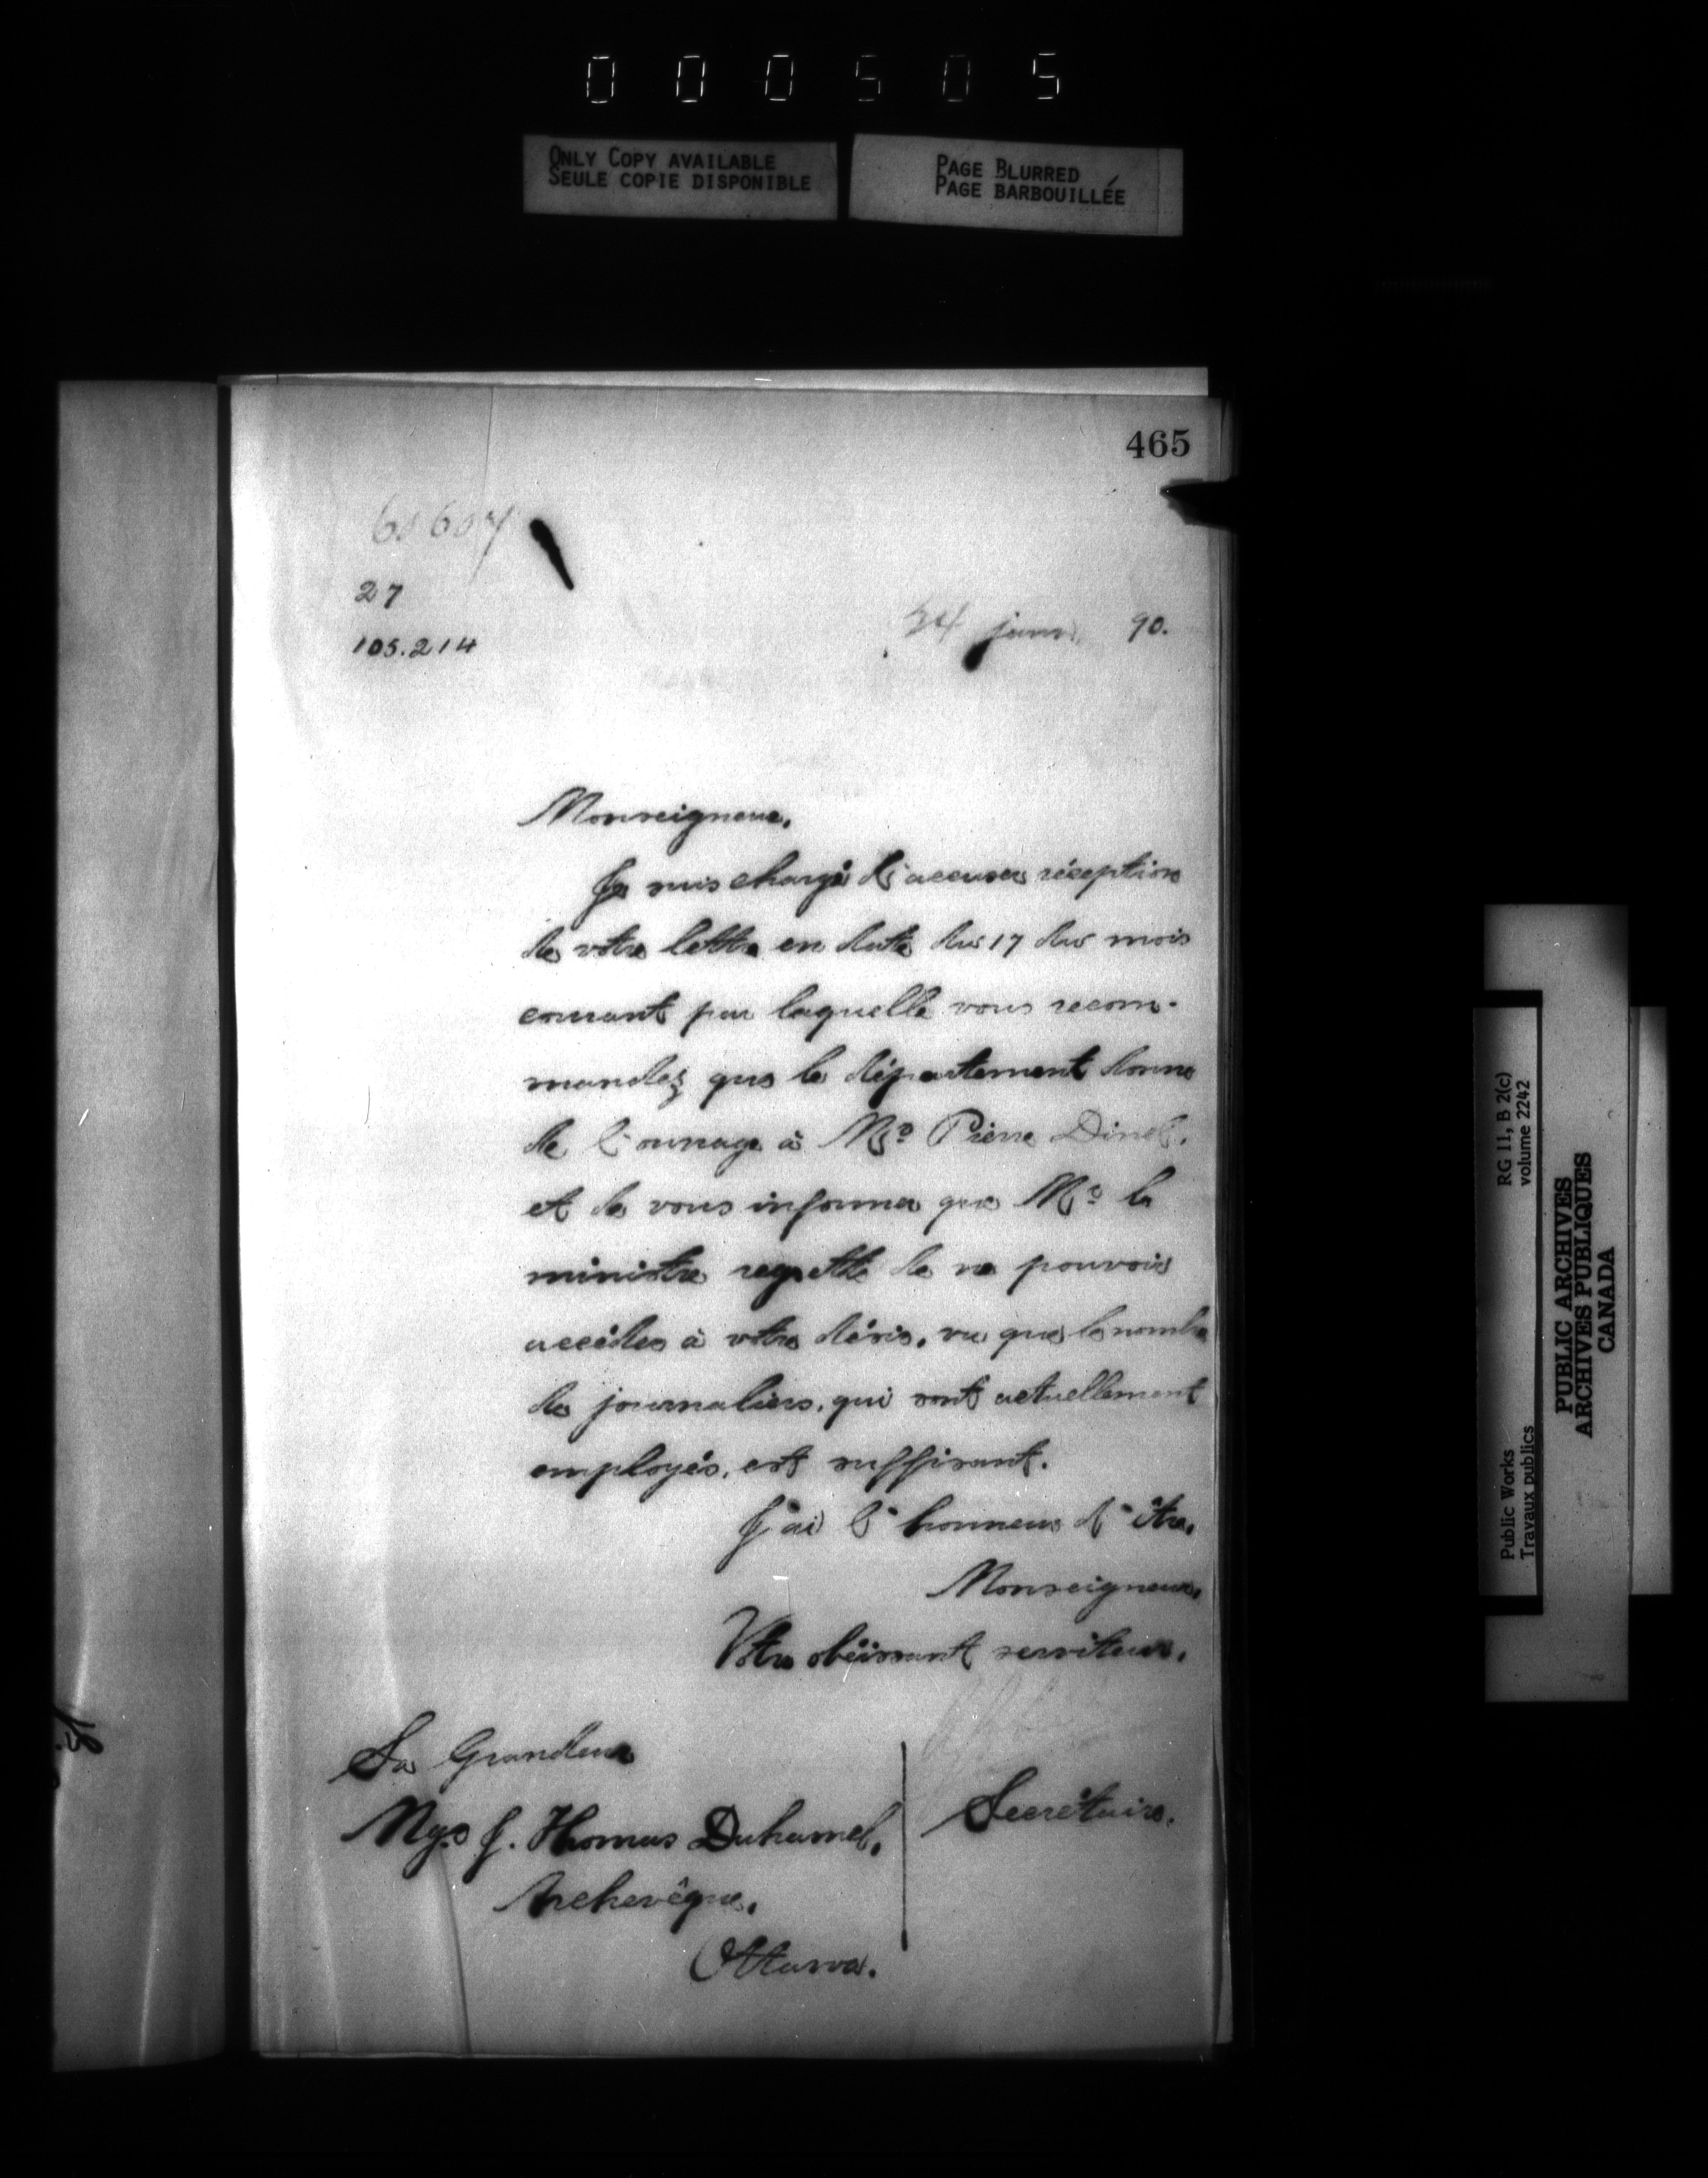 000505
ONLY COPY AVAILABLE
SEULE COPIE DISPONIBLE
PAGE BLURRED
PAGE BARBOUILLÉE
465
27
105.214
24 janv. 90.
Monseigneur,
Je suis chargé d'accuser réception
de votre lettre en date du 17 du mois
courant par laquelle vous recom-
mandez que le département donne
de l'ouvrage à Mr Pierre Dinel,
et de vous informer que Mr le
ministre regrette de ne pouvoir
accéder à votre désir, vu que le nombre
de journaliers, qui sont actuellement
employés, est suffisant.
J'ai l'honneur d'être,
Monseigneur,
Votre obéissant serviteur,
Secrétaire.
Sa Grandeur
Mgr J. Thomas Duhamel,
Archevêque,
Ottawa.
Public Works
Travaux publics
RG 11, B 2(c)
volume 2242
PUBLIC ARCHIVES
ARCHIVES PUBLIQUES
CANADA